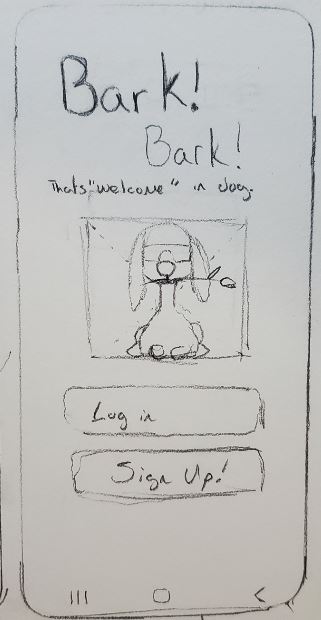 Bark!
Bark!
Thats "welcome" in dog.
Log in
Sign Up!